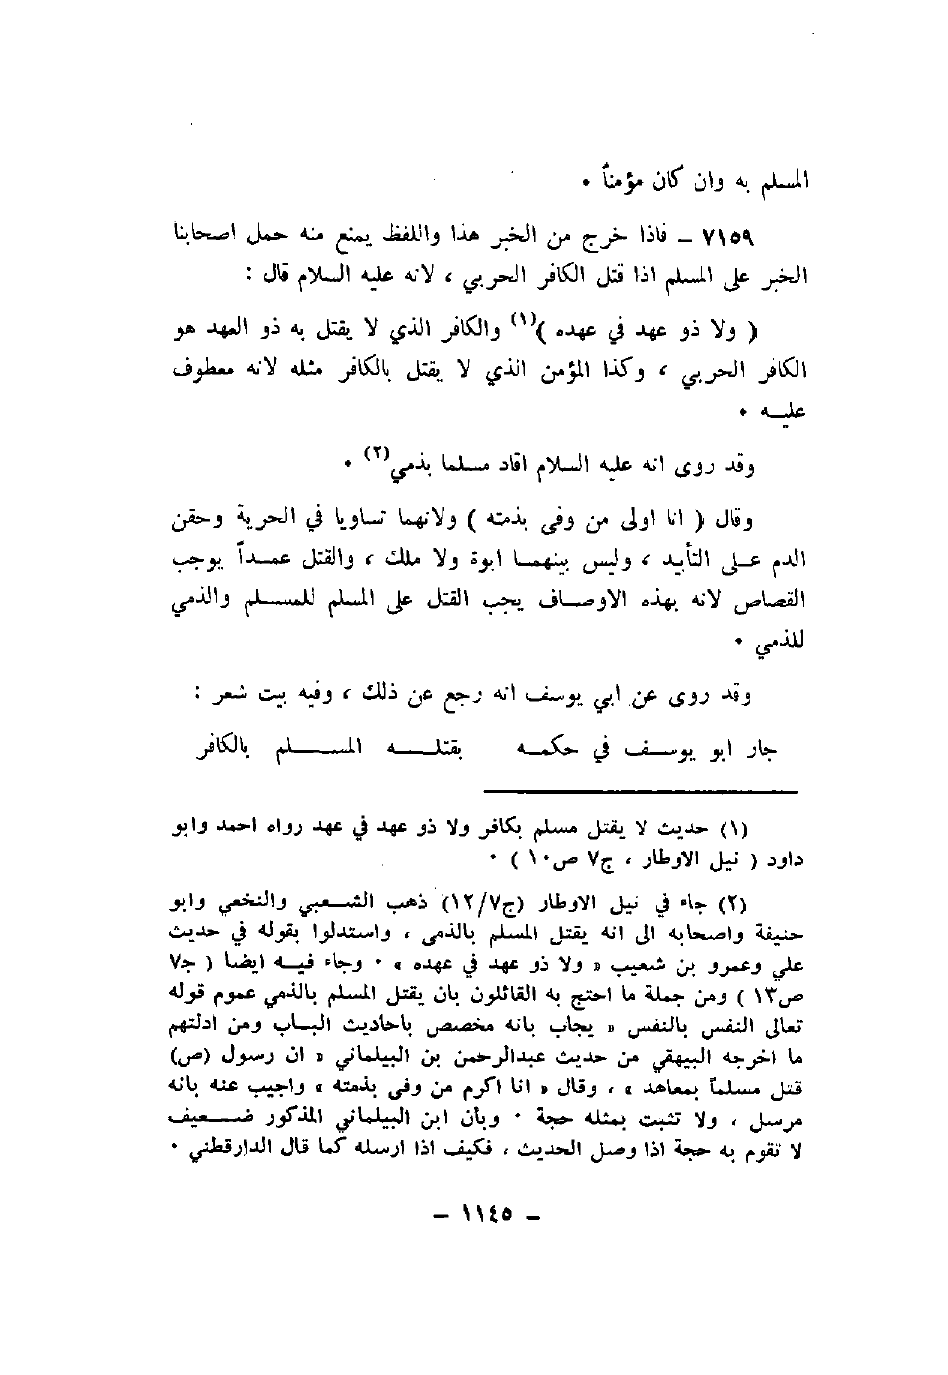 المسلم به وان كان مؤمناً ٠
٧١٥٩ ـ فاذا خرج من الخبر هذا واللفظ يمنع منه حمل اصحابنا
الخبر على المسلم اذا قتل الكافر الحربي ، لانه عليه السلام قال :
( ولا ذو عهد في عهده )(١) والكافر الذي لا يقتل به ذو العهد هو
الكافر الحربي ، وكذا المؤمن الذي لا يقتل بالكافر مثله لانه معطوف
عليه ٠
وقد روى انه عليه السلام اقاد مسلما بذمي(٢) ٠
وقال ( انا اولى من وفى بذمته ) ولانهما تساويا في الحرية وحقن
الدم على التأبيد ، وليس بينهما ابوة ولا ملك ، والقتل عمداً يوجب
القصاص لانه بهذه الاوصاف يجب القتل على المسلم للمسلم والذمي
للذمي ٠
وقد روى عن ابي يوسف انه رجع عن ذلك ، وفيه بيت شعر :
جار ابو يوسف في حكمه بقتله المسلم بالكافر
(١) حديث لا يقتل مسلم بكافر ولا ذو عهد في عهد رواه احمد وابو
داود ( نيل الاوطار ، ج٧ ص١٠ ) ٠
(٢) جاء في نيل الاوطار (ج١٢/٧) ذهب الشعبي والنخعي وابو
حنيفة واصحابه الى انه يقتل المسلم بالذمى ، واستدلوا بقوله في حديث
علي وعمرو بن شعيب « ولا ذو عهد في عهده » ٠ وجاء فيه ايضا ( ج٧
ص١٣ ) ومن جملة ما احتج به القائلون بان يقتل المسلم بالذمي عموم قوله
تعالى النفس بالنفس « يجاب بانه مخصص باحاديث الباب ومن ادلتهم
ما اخرجه البيهقي من حديث عبدالرحمن بن البيلماني « ان رسول (ص)
قتل مسلماً بمعاهد » ، وقال « انا اكرم من وفى بذمته » واجيب عنه بانه
مرسل ، ولا تثبت بمثله حجة ٠ وبأن ابن البيلماني المذكور ضعيف
لا تقوم به حجة اذا وصل الحديث ، فكيف اذا ارسله كما قال الدارقطني ٠
ـ ١١٤٥ ـ